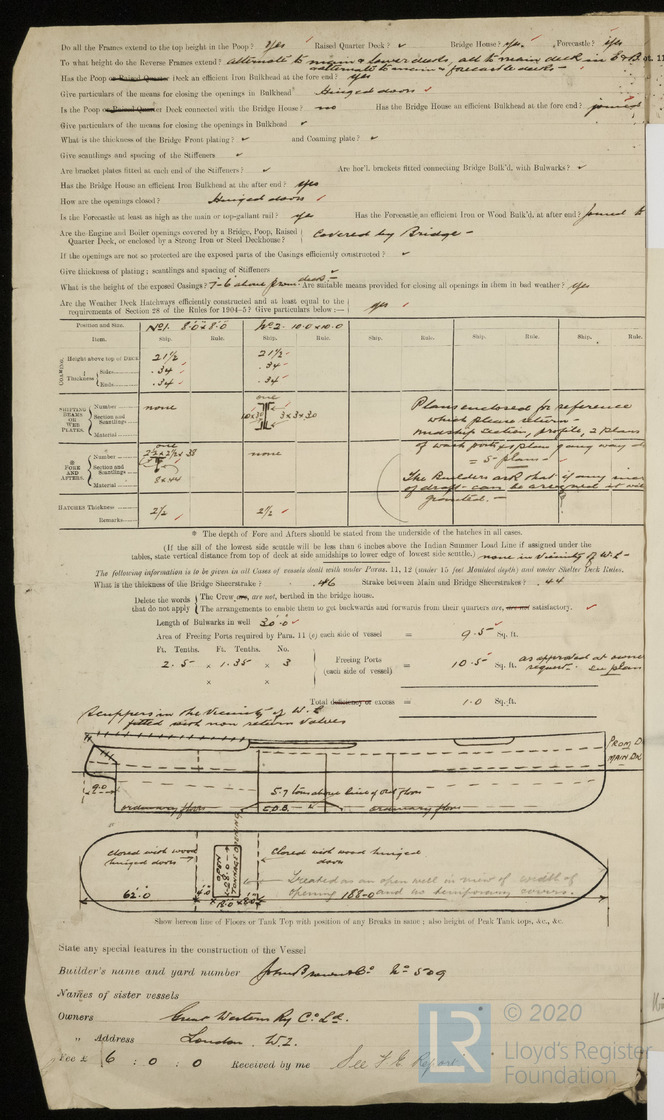 Do all the Frames extend to the top height in the Poop? Yes Raised Quarter Deck? ✓ Bridge House? yes. Forecastle? yes
To what height do the Reverse Frames extend? alternate to main & lower decks, all to main deck in E & B.
alternate to main & forecastle decks
Has the Poop or Raised Quarter Deck an efficient Iron Bulkhead at the fore end? yes
Give particulars of the means for closing the openings in Bulkhead Hinged doors ✓
Is the Poop or Raised Quarter Deck connected with the Bridge House? no Has the Bridge House an efficient Bulkhead at the fore end? joined
Give particulars of the means for closing the openings in Bulkhead ✓
What is the thickness of the Bridge Front plating? ✓ and Coaming plate? ✓
Give scantlings and spacing of the Stiffeners ✓
Are bracket plates fitted at each end of the Stiffeners? ✓ Are hor'l. brackets fitted connecting Bridge Bulk'd, with Bulwarks? ✓
Has the Bridge House an efficient Iron Bulkhead at the after end? yes
How are the openings closed? Hinged doors ✓
Is the Forecastle at least as high as the main or top-gallant rail? ye Has the Forecastle an efficient Iron or Wood Bulk'd. at after end? Joined to
Are the Engine and Boiler openings covered by a Bridge, Poop, Raised Quarter Deck, or enclosed by a Strong Iron or Steel Deckhouse? Covered by Bridge -
If the openings are not so protected are the exposed parts of the Casings efficiently constructed? ✓
Give thickness of plating; scantlings and spacing of Stiffeners ✓
What is the height of the exposed Casings? 7-6 above from deck Are suitable means provided for closing all openings in them in bad weather? yes
Are the Weather Deck Hatchways efficiently constructed and at least equal to the
requirements of Section 28 of the Rules for 1904-5? Give particulars below:— yes ✓
Position and Size. No 1. 8.0 x 8.0 No 2. 10.0 x 10.0
Item. Ship. Rule. Ship. Rule. Ship. Rule. Ship. Rule. Ship. Rule.
COAMING.
Height above top of Deck 21½ 21½
Thickness Sides .34 .34
Ends .34 .34
SHIFTING BEAMS OR WEB PLATES.
Number none one
Section and Scantlings 10 x 30 3 x 3 x 30
Material
* FORE AND AFTERS.
Number one none
Section and Scantlings 2½ x 2½ x 38
8 x 44
Material
HATCHES Thickness 2½ 2½
Remarks
Plans enclosed for reference
which please return -
midship section, profile, 2 plans
of wash ports & plan
= 5 - plans
The Builders ask that if any
of draft can be it
granted. -
* The depth of Fore and Afters should be stated from the underside of the hatches in all cases.
(If the sill of the lowest side scuttle will be less than 6 inches above the Indian Summer Load Line if assigned under the
tables, state vertical distance from top of deck at side amidships to lower edge of lowest side scuttle.) none in vicinity of W.L -
The following information is to be given in all Cases of vessels dealt with under Paras. 11, 12 (under 15 feet Moulded depth) and under Shelter Deck Rules.
What is the thickness of the Bridge Sheerstrake? .46 Strake between Main and Bridge Sheerstrakes? .44
Delete the words that do not apply
The Crew are, are not, berthed in the bridge house.
The arrangements to enable them to get backwards and forwards from their quarters are, are not satisfactory. ✓
Length of Bulwarks in well 30.0 ✓
Area of Freeing Ports required by Para. 11 (e) each side of vessel = 9.5 Sq. ft.
Ft. Tenths. Ft. Tenths. No.
2.5 × 1.35 × 3 Freeing Ports (each side of vessel) = 10.5 Sq. ft. as approved at owners
request. See plans
× ×
Total deficiency or excess = 1.0 Sq. ft.
Scuppers in the vicinity of W.L
fitted with non return valves
FROM D
MAIN DK
9.0
5.7 tons above line of ord floor
ordinary floors C.D.B. ordinary floors
Closed with wood
hinged doors
OPEN
28.0
TONNAGE OPENING
Closed with wood hinged
doors
Treated as an open well in view of width of
opening and no temporary covers.
62.0 4.0 18.0 188.0
Show hereon line of Floors or Tank Top with position of any Breaks in same; also height of Peak Tank tops, &c., &c.
State any special features in the construction of the Vessel
Builder's name and yard number John Brown & Co No 509
Names of sister vessels
Owners Great Western Ry Co. Ld.
" Address London. W.2.
Fee £ 6 : 0 : 0 Received by me See F.E. Report
LR
© 2020
Lloyd's Register
Foundation